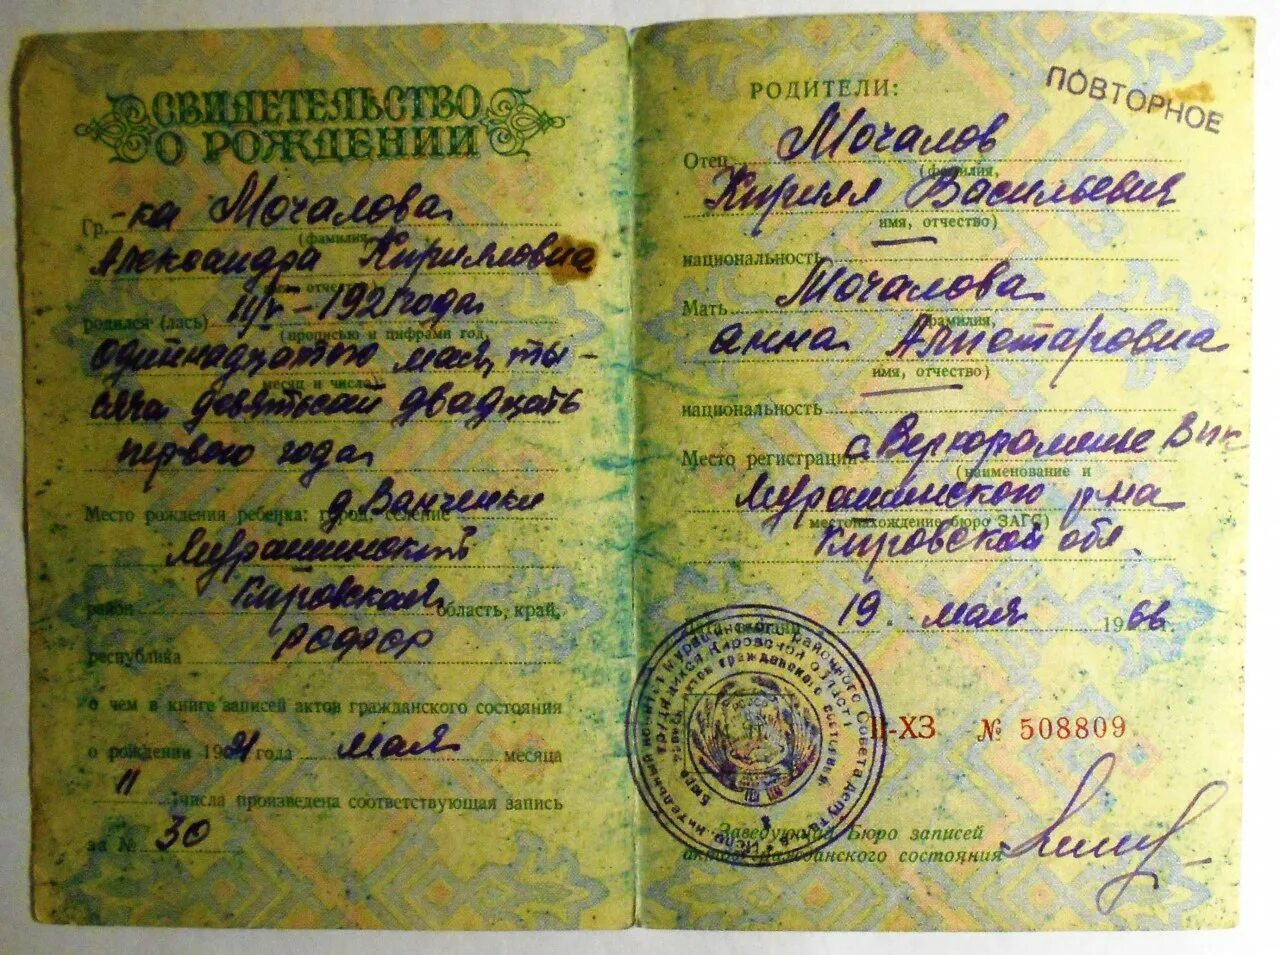 СВИДЕТЕЛЬСТВО
О РОЖДЕНИИ
Гр.-ка Мочалова
(фамилия,
Александра Кирилловна
имя, отчество)
родился (лась) 11/V-1921 года
(прописью и цифрами год,
одиннадцатого мая, ты-
месяц и число)
сяча девятьсот двадцать
первого года
д. Ванченки
Место рождения ребенка: город, селение
Мурашинский
район Кировская область, край,
республика РСФСР
о чем в книге записей актов гражданского состояния
о рождении 1921 года мая месяца
11 числа произведена соответствующая запись
за № 30
РОДИТЕЛИ:
ПОВТОРНОЕ
Отец Мочалов
(фамилия,
Кирилл Васильевич
имя, отчество)
национальность —
Мать Мочалова
фамилия,
Анна
имя, отчество)
национальность —
Место регистрации с. Верхораменье
(наименование и
Мурашинского р-на
местонахождение бюро ЗАГС)
Кировской обл.
19 мая 1966 г.
II-ХЗ № 508809
Заведующий Бюро записей
актов гражданского состояния